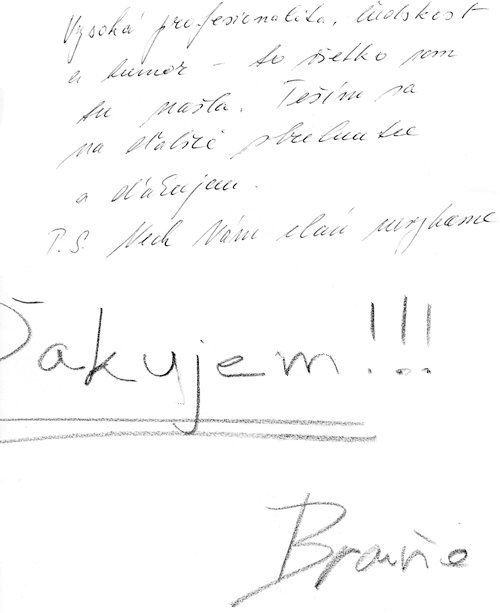 Vysoká profesionalita, ľudskosť
a humor – to všetko som
tu našla. Teším sa
na ďalšie stretnutie
a ďakujem.
P.S. Nech Vám elán nevyhasne
Ďakujem!!!